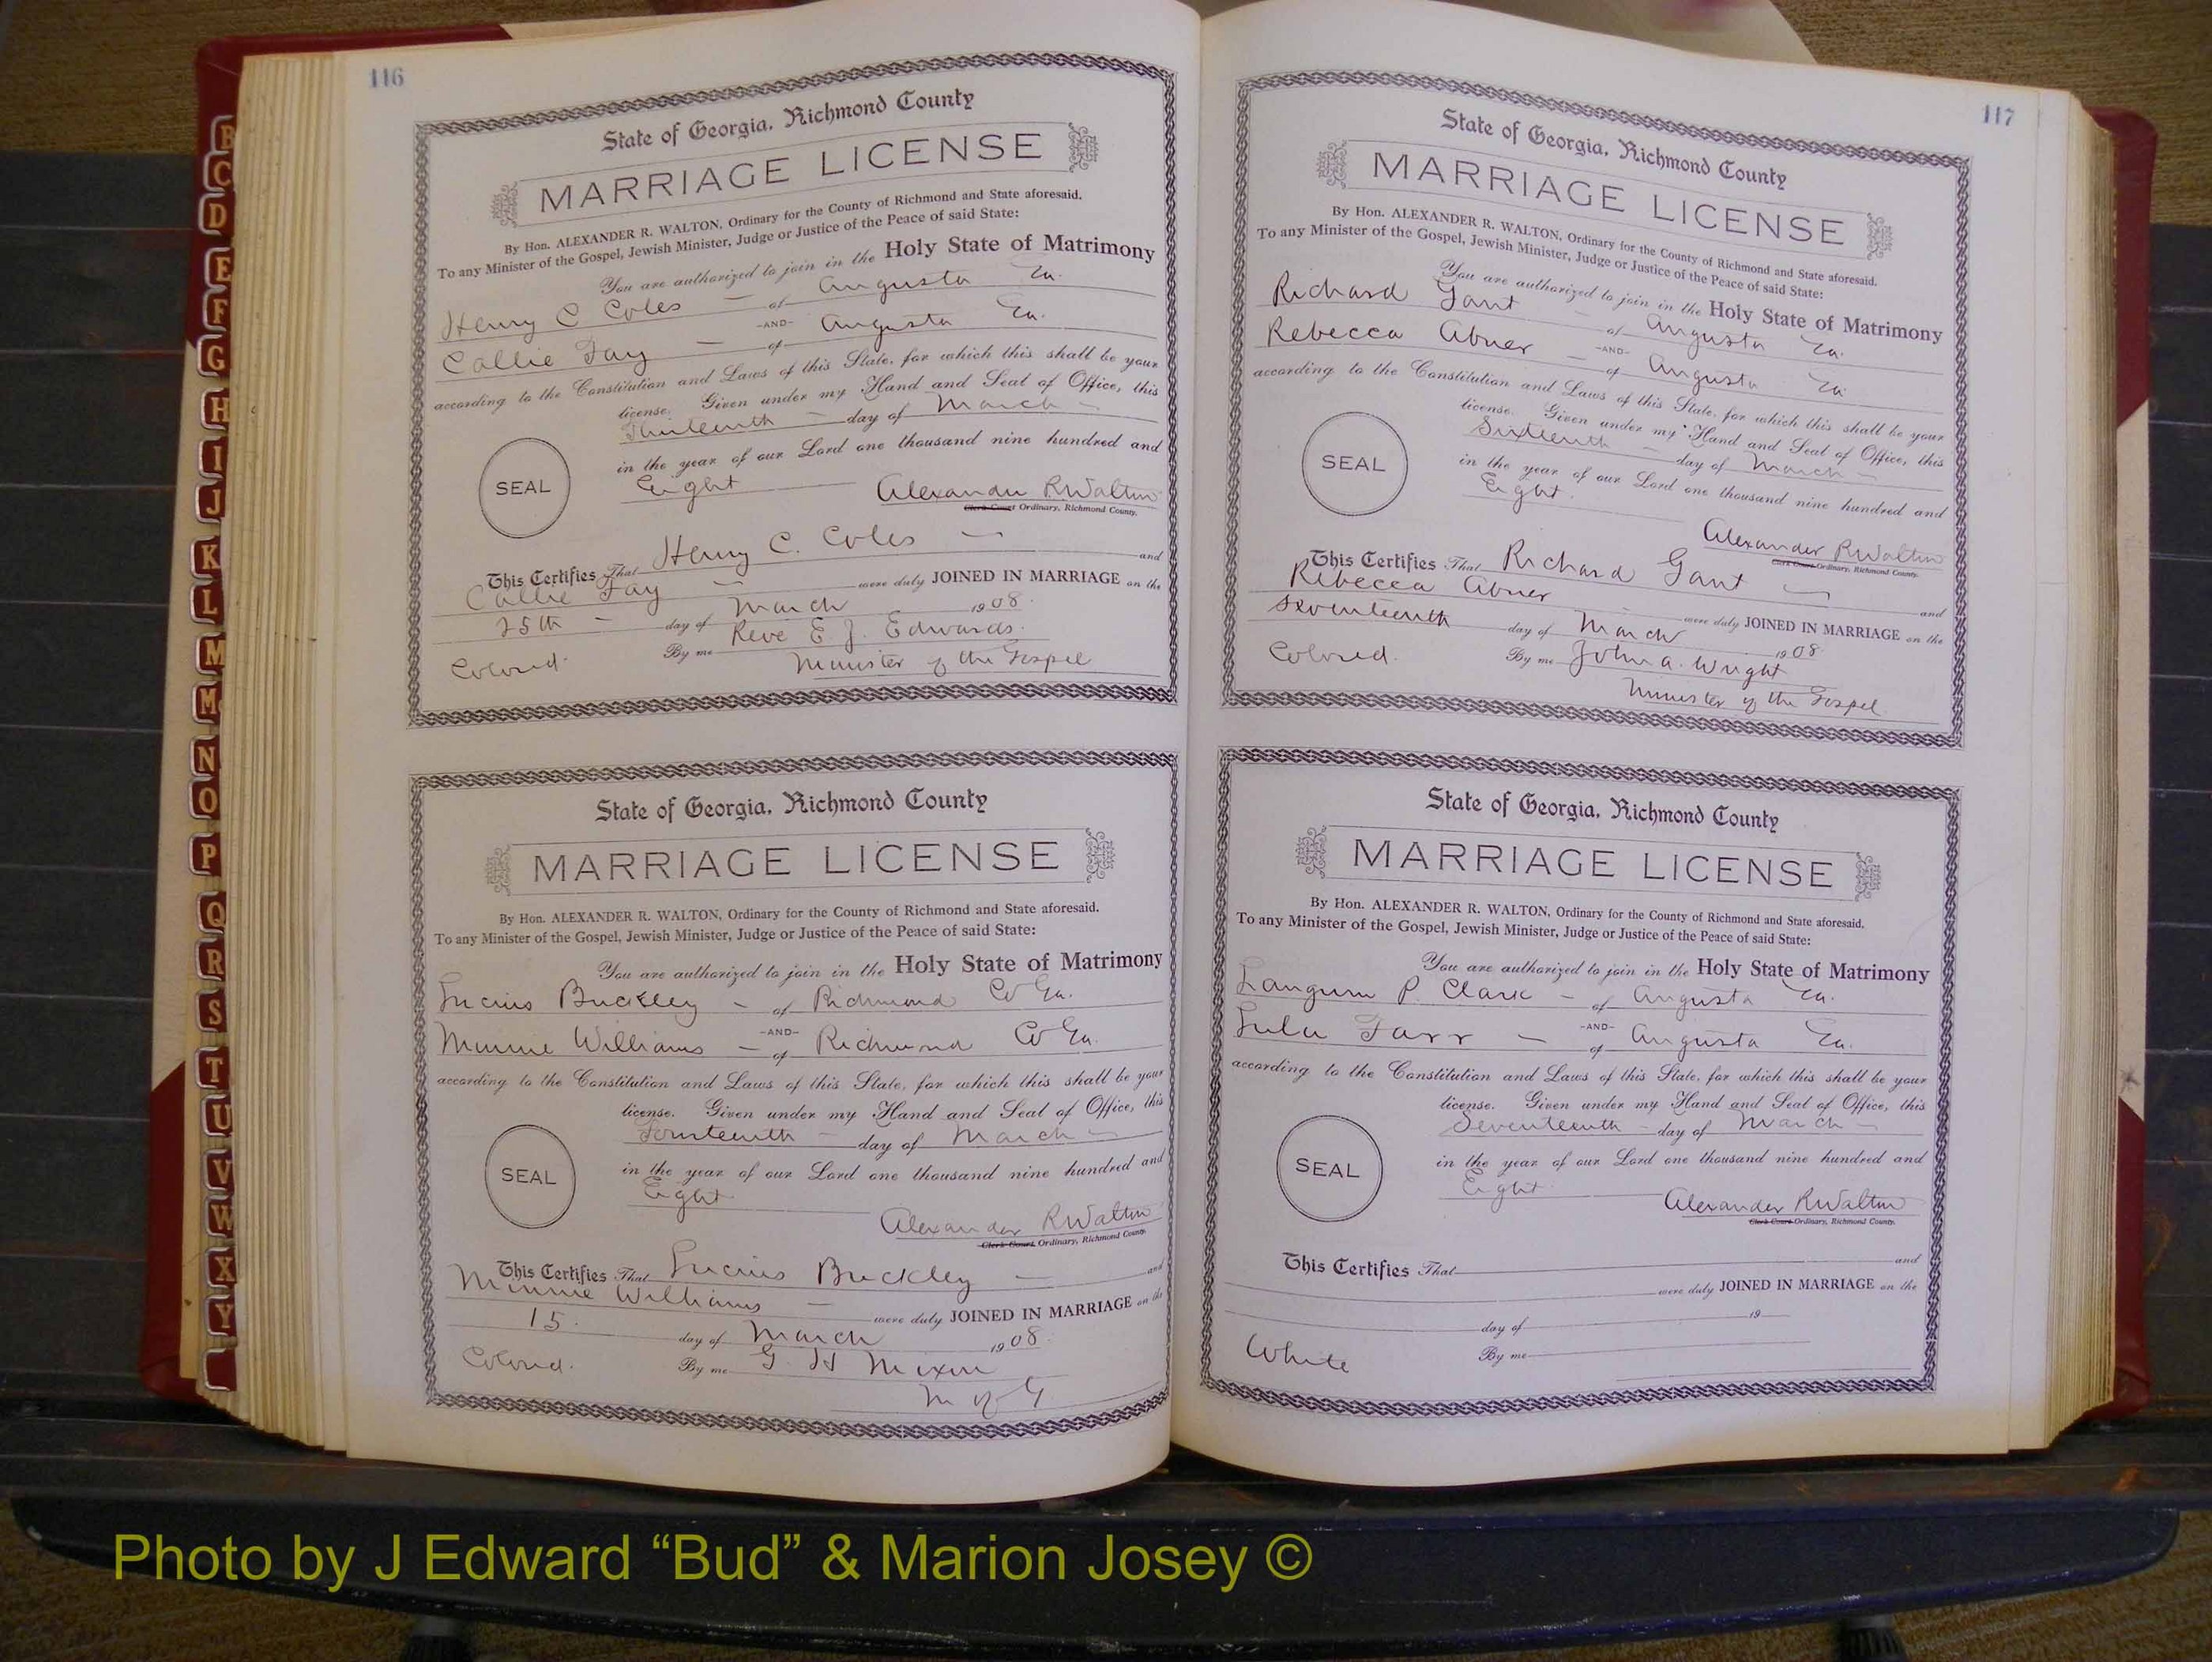 116
State of Georgia, Richmond County
MARRIAGE LICENSE
By Hon. ALEXANDER R. WALTON, Ordinary for the County of Richmond and State aforesaid.
To any Minister of the Gospel, Jewish Minister, Judge or Justice of the Peace of said State:
You are authorized to join in the Holy State of Matrimony
Henry C Coles — of Augusta Ga.
-AND-
Callie Fay — of Augusta Ga.
according to the Constitution and Laws of this State, for which this shall be your
license. Given under my Hand and Seal of Office, this
Thirteenth — day of March
in the year of our Lord one thousand nine hundred and
SEAL
Eight
Alexander R Walton
Clerk Court Ordinary, Richmond County.
This Certifies That Henry C. Coles — and
Callie Fay — were duly JOINED IN MARRIAGE on the
25th — day of March 1908.
Colored. By me Reve E J. Edwards.
Minister of the Gospel
State of Georgia, Richmond County
MARRIAGE LICENSE
By Hon. ALEXANDER R. WALTON, Ordinary for the County of Richmond and State aforesaid.
To any Minister of the Gospel, Jewish Minister, Judge or Justice of the Peace of said State:
You are authorized to join in the Holy State of Matrimony
Lucius Buckley — of Richmond Co Ga.
-AND-
Minnie Williams — of Richmond Co Ga.
according to the Constitution and Laws of this State, for which this shall be your
license. Given under my Hand and Seal of Office, this
Fourteenth — day of March —
in the year of our Lord one thousand nine hundred and
SEAL
Eight
Alexander R Walton
Clerk Court Ordinary, Richmond County.
This Certifies That Lucius Buckley — and
Minnie Williams — were duly JOINED IN MARRIAGE on the
15. day of March 1908.
Colored. By me G. H Mixon
M of G
117
State of Georgia, Richmond County
MARRIAGE LICENSE
By Hon. ALEXANDER R. WALTON, Ordinary for the County of Richmond and State aforesaid.
To any Minister of the Gospel, Jewish Minister, Judge or Justice of the Peace of said State:
You are authorized to join in the Holy State of Matrimony
Richard Gant — of Augusta Ga.
-AND-
Rebecca Abner — of Augusta Ga
according to the Constitution and Laws of this State, for which this shall be your
license. Given under my Hand and Seal of Office, this
Sixteenth — day of March —
in the year of our Lord one thousand nine hundred and
SEAL
Eight.
Alexander R Walton
Clerk Court Ordinary, Richmond County.
This Certifies That Richard Gant — and
Rebecca Abner were duly JOINED IN MARRIAGE on the
Seventeenth day of March 1908
Colored. By me John A. Wright
Minister of the Gospel.
State of Georgia, Richmond County
MARRIAGE LICENSE
By Hon. ALEXANDER R. WALTON, Ordinary for the County of Richmond and State aforesaid.
To any Minister of the Gospel, Jewish Minister, Judge or Justice of the Peace of said State:
You are authorized to join in the Holy State of Matrimony
P. Clark — of Augusta Ga.
-AND-
Lula Farr — of Augusta Ga.
according to the Constitution and Laws of this State, for which this shall be your
license. Given under my Hand and Seal of Office, this
Seventeenth — day of March —
in the year of our Lord one thousand nine hundred and
SEAL
Eight
Alexander R Walton
Clerk Court Ordinary, Richmond County.
This Certifies That and
were duly JOINED IN MARRIAGE on the
day of 19
White By me
B
C
D
E
F
G
H
I
J
K
L
M
Mc
N
O
P
Q
R
S
T
U
V
W
X
Y
Photo by J Edward “Bud” & Marion Josey ©